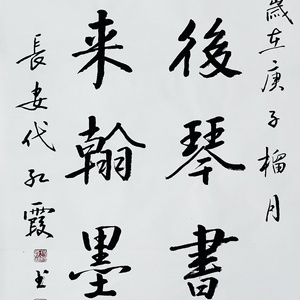 歲在庚子榴月
後琴書
来翰墨
長安代红霞书